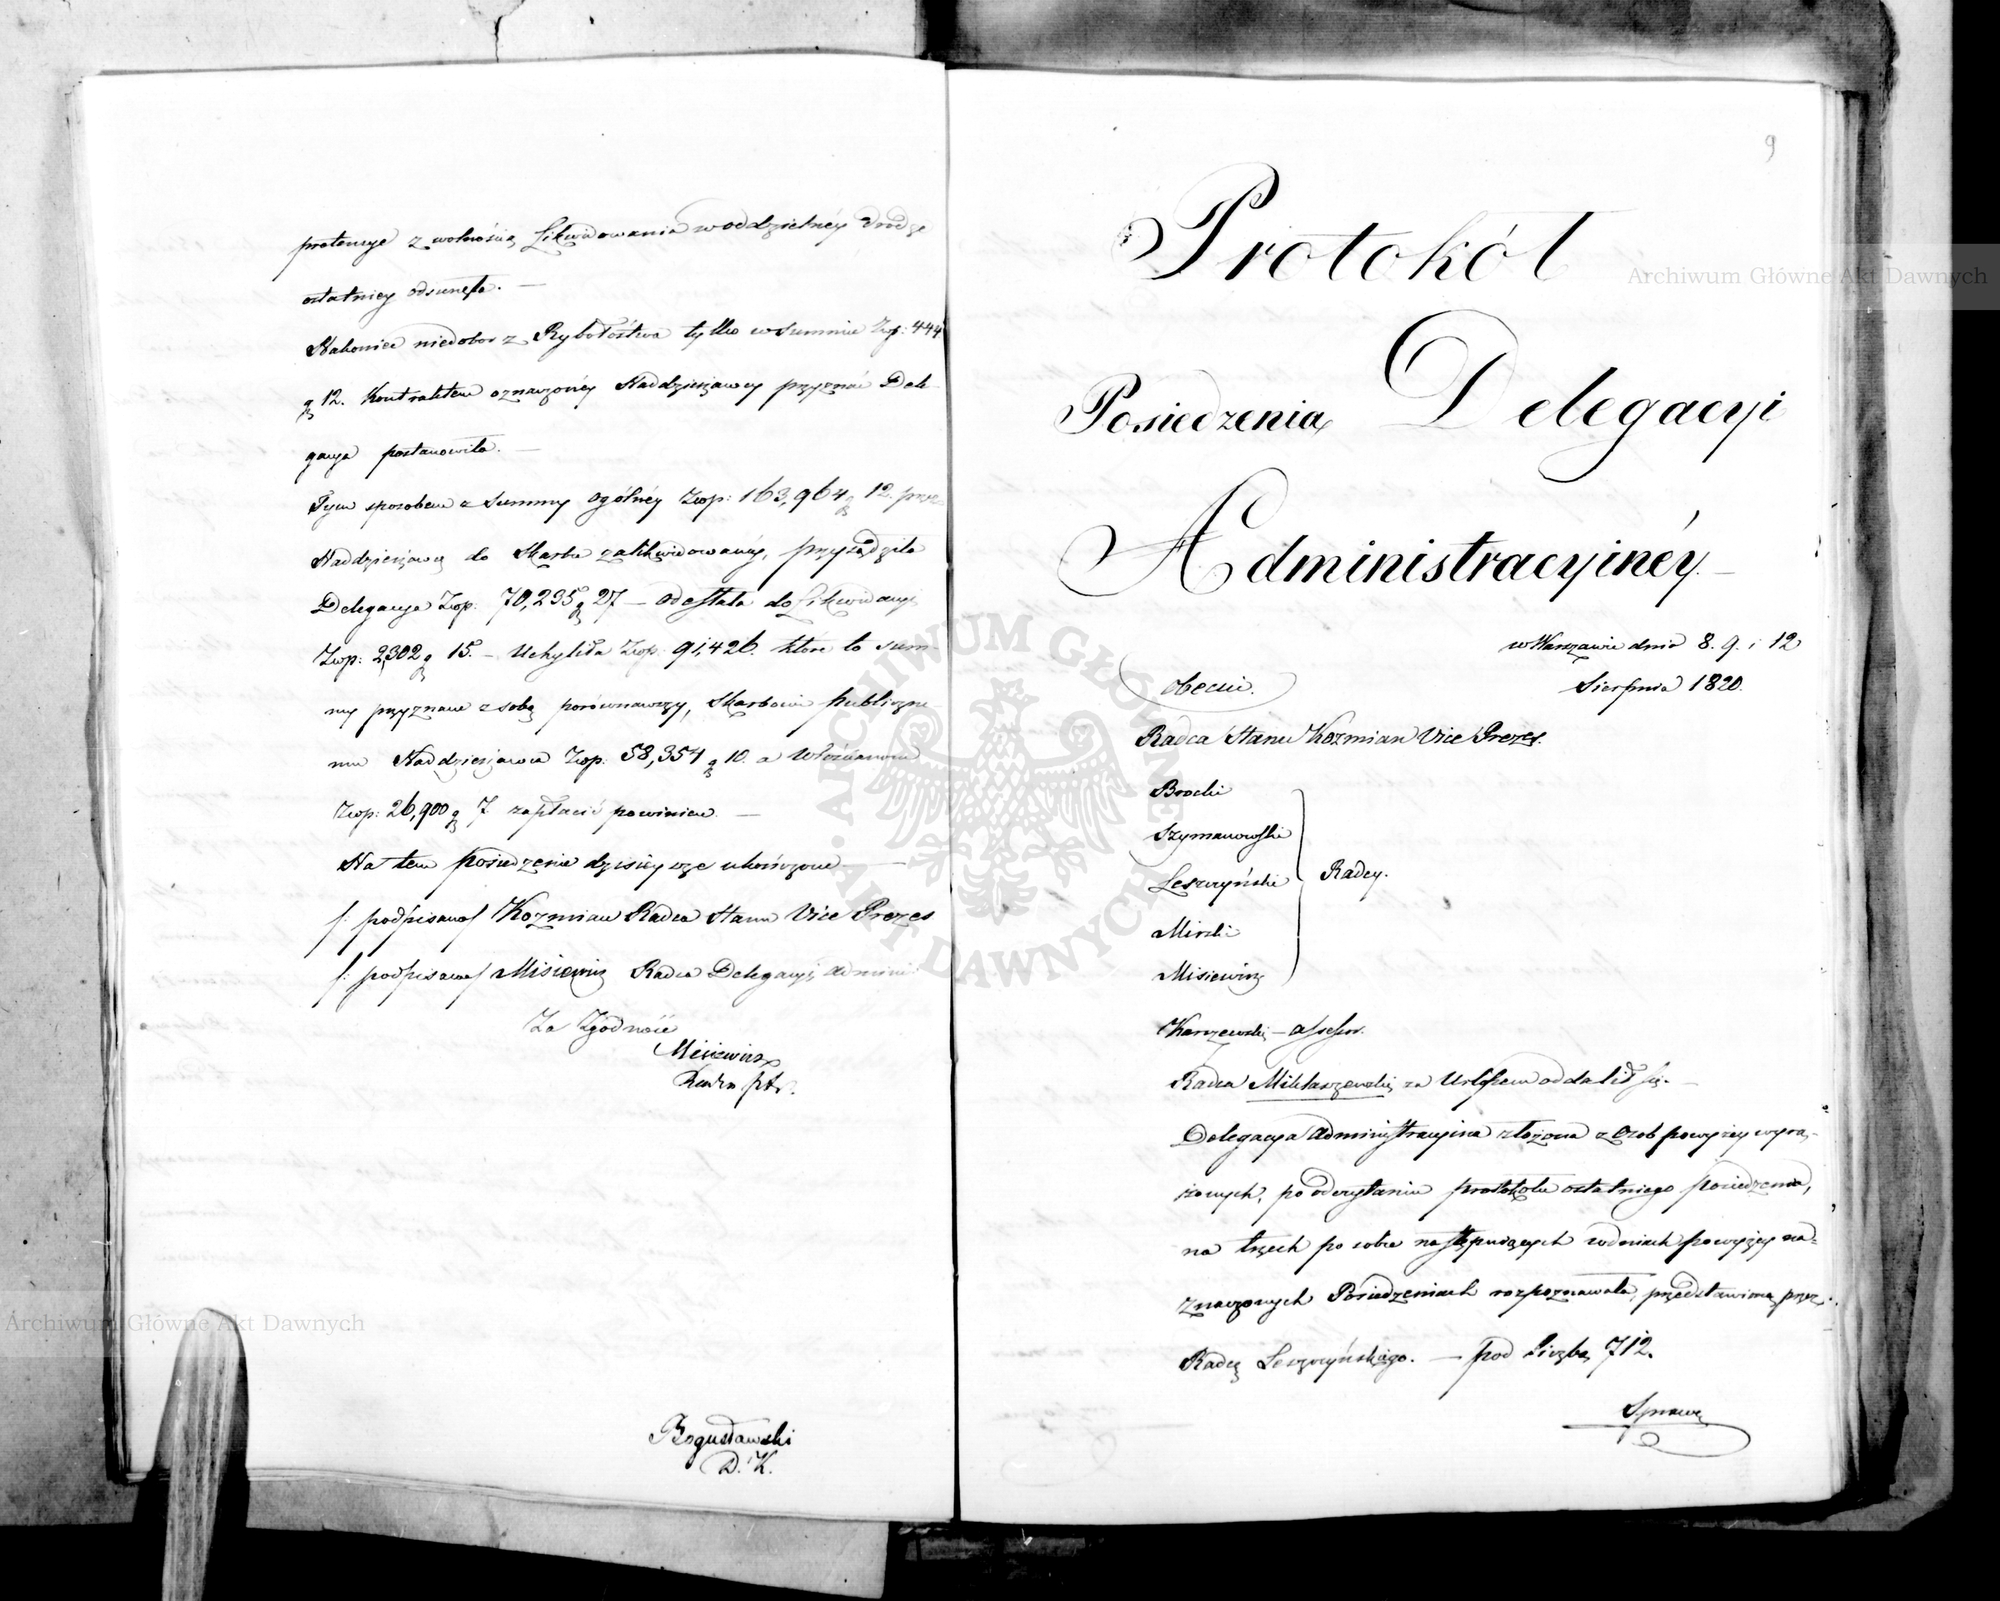 pretensye z wolnością Likwidowania w oddzielnéy drodze
ostatniey odsunęła. —
Nakoniec niedobor z Rybołostwa tylko w summie Złp: 444
gr 12. Kontraktem oznaczonéy Naddzierżawcy przyznać Dele-
gacya postanowiła. —
Tym sposobem z Summy ogólnéy Złp: 163,964 gr 12. przez
Naddzierżawcę do Skarbu zalikwidowanéy, przysądziła
Delegacya Złp. 70,235 gr 27 — odesłała do Likwidacyi
Złp: 2,302 gr 15. — Uchyliła Złp. 91,426. które to sum-
my przyznane z sobą porównawszy, Skarbowi publiczne-
mu Naddzierżawca Złp. 58,354 gr 10. a Włościanom
Złp: 26,900 gr 7 zapłacić powinien. —
Na tem posiedzenie dzisieysze ukończone —
/: podpisano/ Kozmian Radca Stanu Vice Prezes
/: podpisano/ Misiewicz Radca Delegacyi Admini:
Za Zgodność
Misiewicz
Bogusławski
D. K.
9
Protokół
Posiedzenia Delegacyi
Administracyinéy. —
w Warszawie dnia 8. 9. i 12
Sierpnia 1820.
obecni.
Radca Stanu Kozmian Vice Prezes.
Brocki
Szymanowski
Leszczyński
Mirski
Misiewicz
Radcy.
Karszewski — assessor.
Radca Miklaszewski za Urlopem oddalił się. —
Delegacya Administracyina złożona z Osob powyżey wyra-
żonych, po odczytaniu protokołu ostatniego posiedzenia,
na trzech po sobie następuiących w dniach powyżey na-
znaczonych Posiedzeniach rozpoznawała, przedstawioną przez
Radcę Leszczyńskiego. — pod Liczbą 712.
Sprawę
Archiwum Główne Akt Dawnych
Archiwum Główne Akt Dawnych
ARCHIWUM GŁÓWNE AKT DAWNYCH